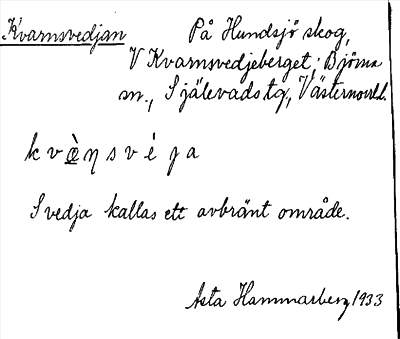 Kvarnsvedjan
På Hundsjö skog,
V Kvarnsvedjeberget; Björna
sn., Själevads tg, Västernorrl.l.
kvæ̀ṇsvéja
Svedja kallas ett avbränt område.
Asta Hammarberg 1933